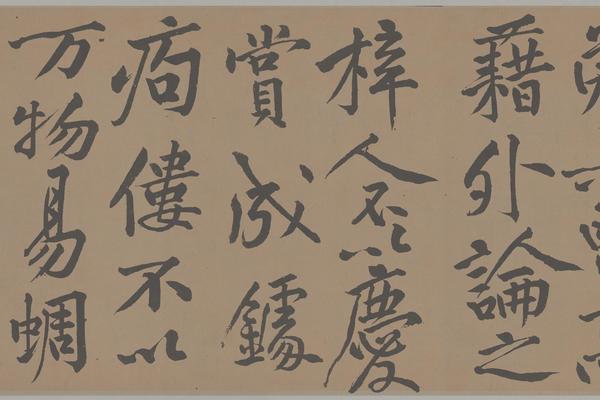 藉外論之
梓人不以慶
賞成鐻
痀僂不以
万物易蜩